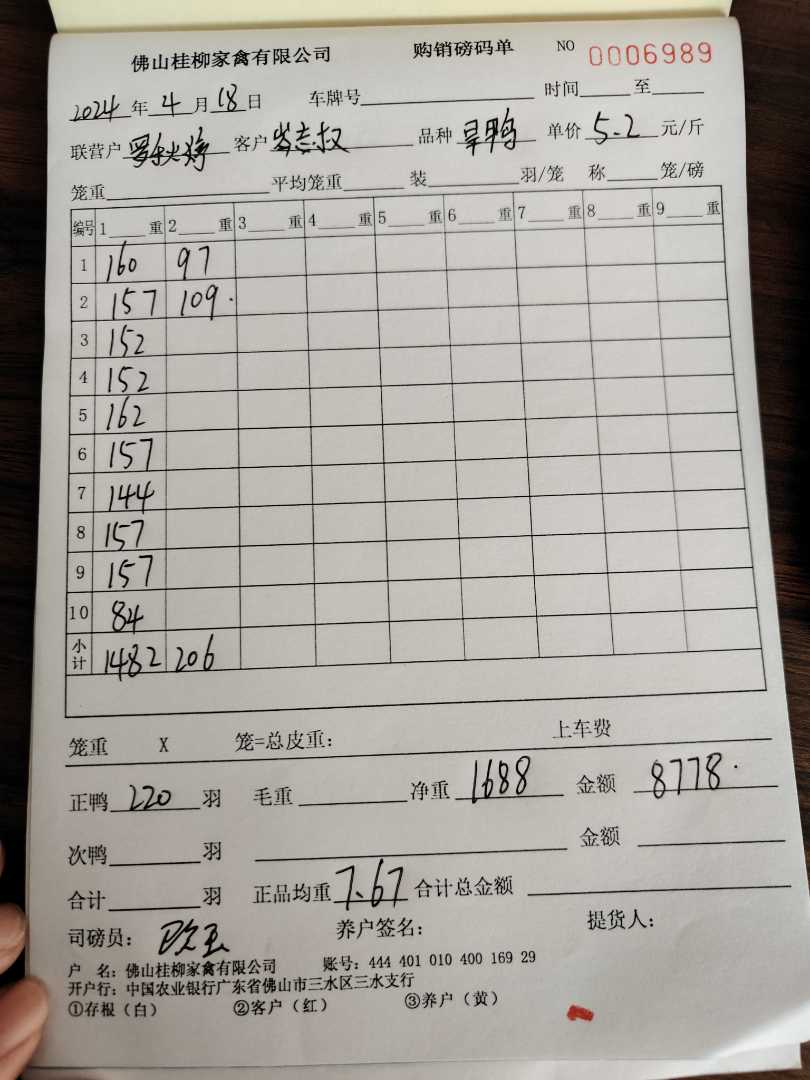 佛山桂柳家禽有限公司 购销磅码单 NO 0006989
2024 年 4 月 18 日 车牌号 时间 至
联营户 客户 岑志权 品种 旱鸭 单价 5.2 元/斤
笼重 平均笼重 装 羽/笼 称 笼/磅
编号 1 重 2 重 3 重 4 重 5 重 6 重 7 重 8 重 9 重
1 160 97
2 157 109.
3 152
4 152
5 162
6 157
7 144
8 157
9 157
10 84
小计 1482 206
笼重 X 笼=总皮重: 上车费
正鸭 220 羽 毛重 净重 1688 金额 8778.
次鸭 羽 金额
合计 羽 正品均重 7.67 合计总金额
司磅员: 养户签名: 提货人:
户 名: 佛山桂柳家禽有限公司 账号: 444 401 010 400 169 29
开户行: 中国农业银行广东省佛山市三水区三水支行
①存根（白） ②客户（红） ③养户（黄）